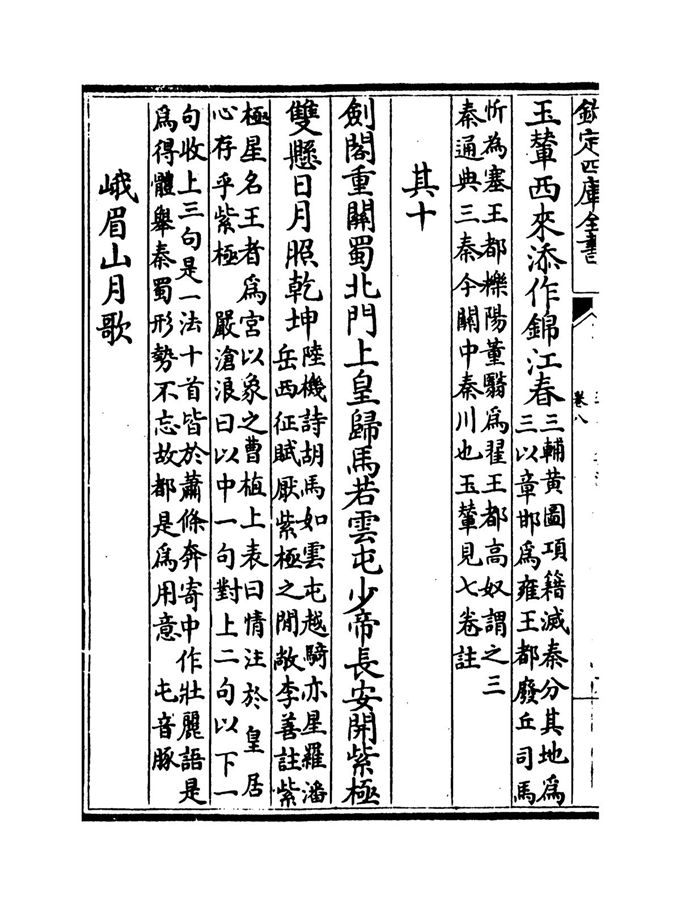 欽定四庫全書
卷八
玉輦西來添作錦江春
三輔黄圖項籍滅秦分其地為
三以章邯爲雍王都廢丘司馬
忻為塞王都櫟陽董翳爲翟王都高奴謂之三
秦通典三秦今關中秦川也玉輦見七卷註
其十
劍閣重關蜀北門上皇歸馬若雲屯少帝長安開紫極
雙懸日月照乾坤
陸機詩胡馬如雲屯越騎亦星羅潘
岳西征賦厭紫極之閒敞李善註紫
極星名王者爲宮以象之曹植上表曰情注於皇居
心存乎紫極　嚴滄浪曰以中一句對上二句以下一
句收上三句是一法十首皆於蕭條奔寄中作壯麗語是
爲得體舉秦蜀形勢不忘故都是爲用意　屯音豚
峨眉山月歌